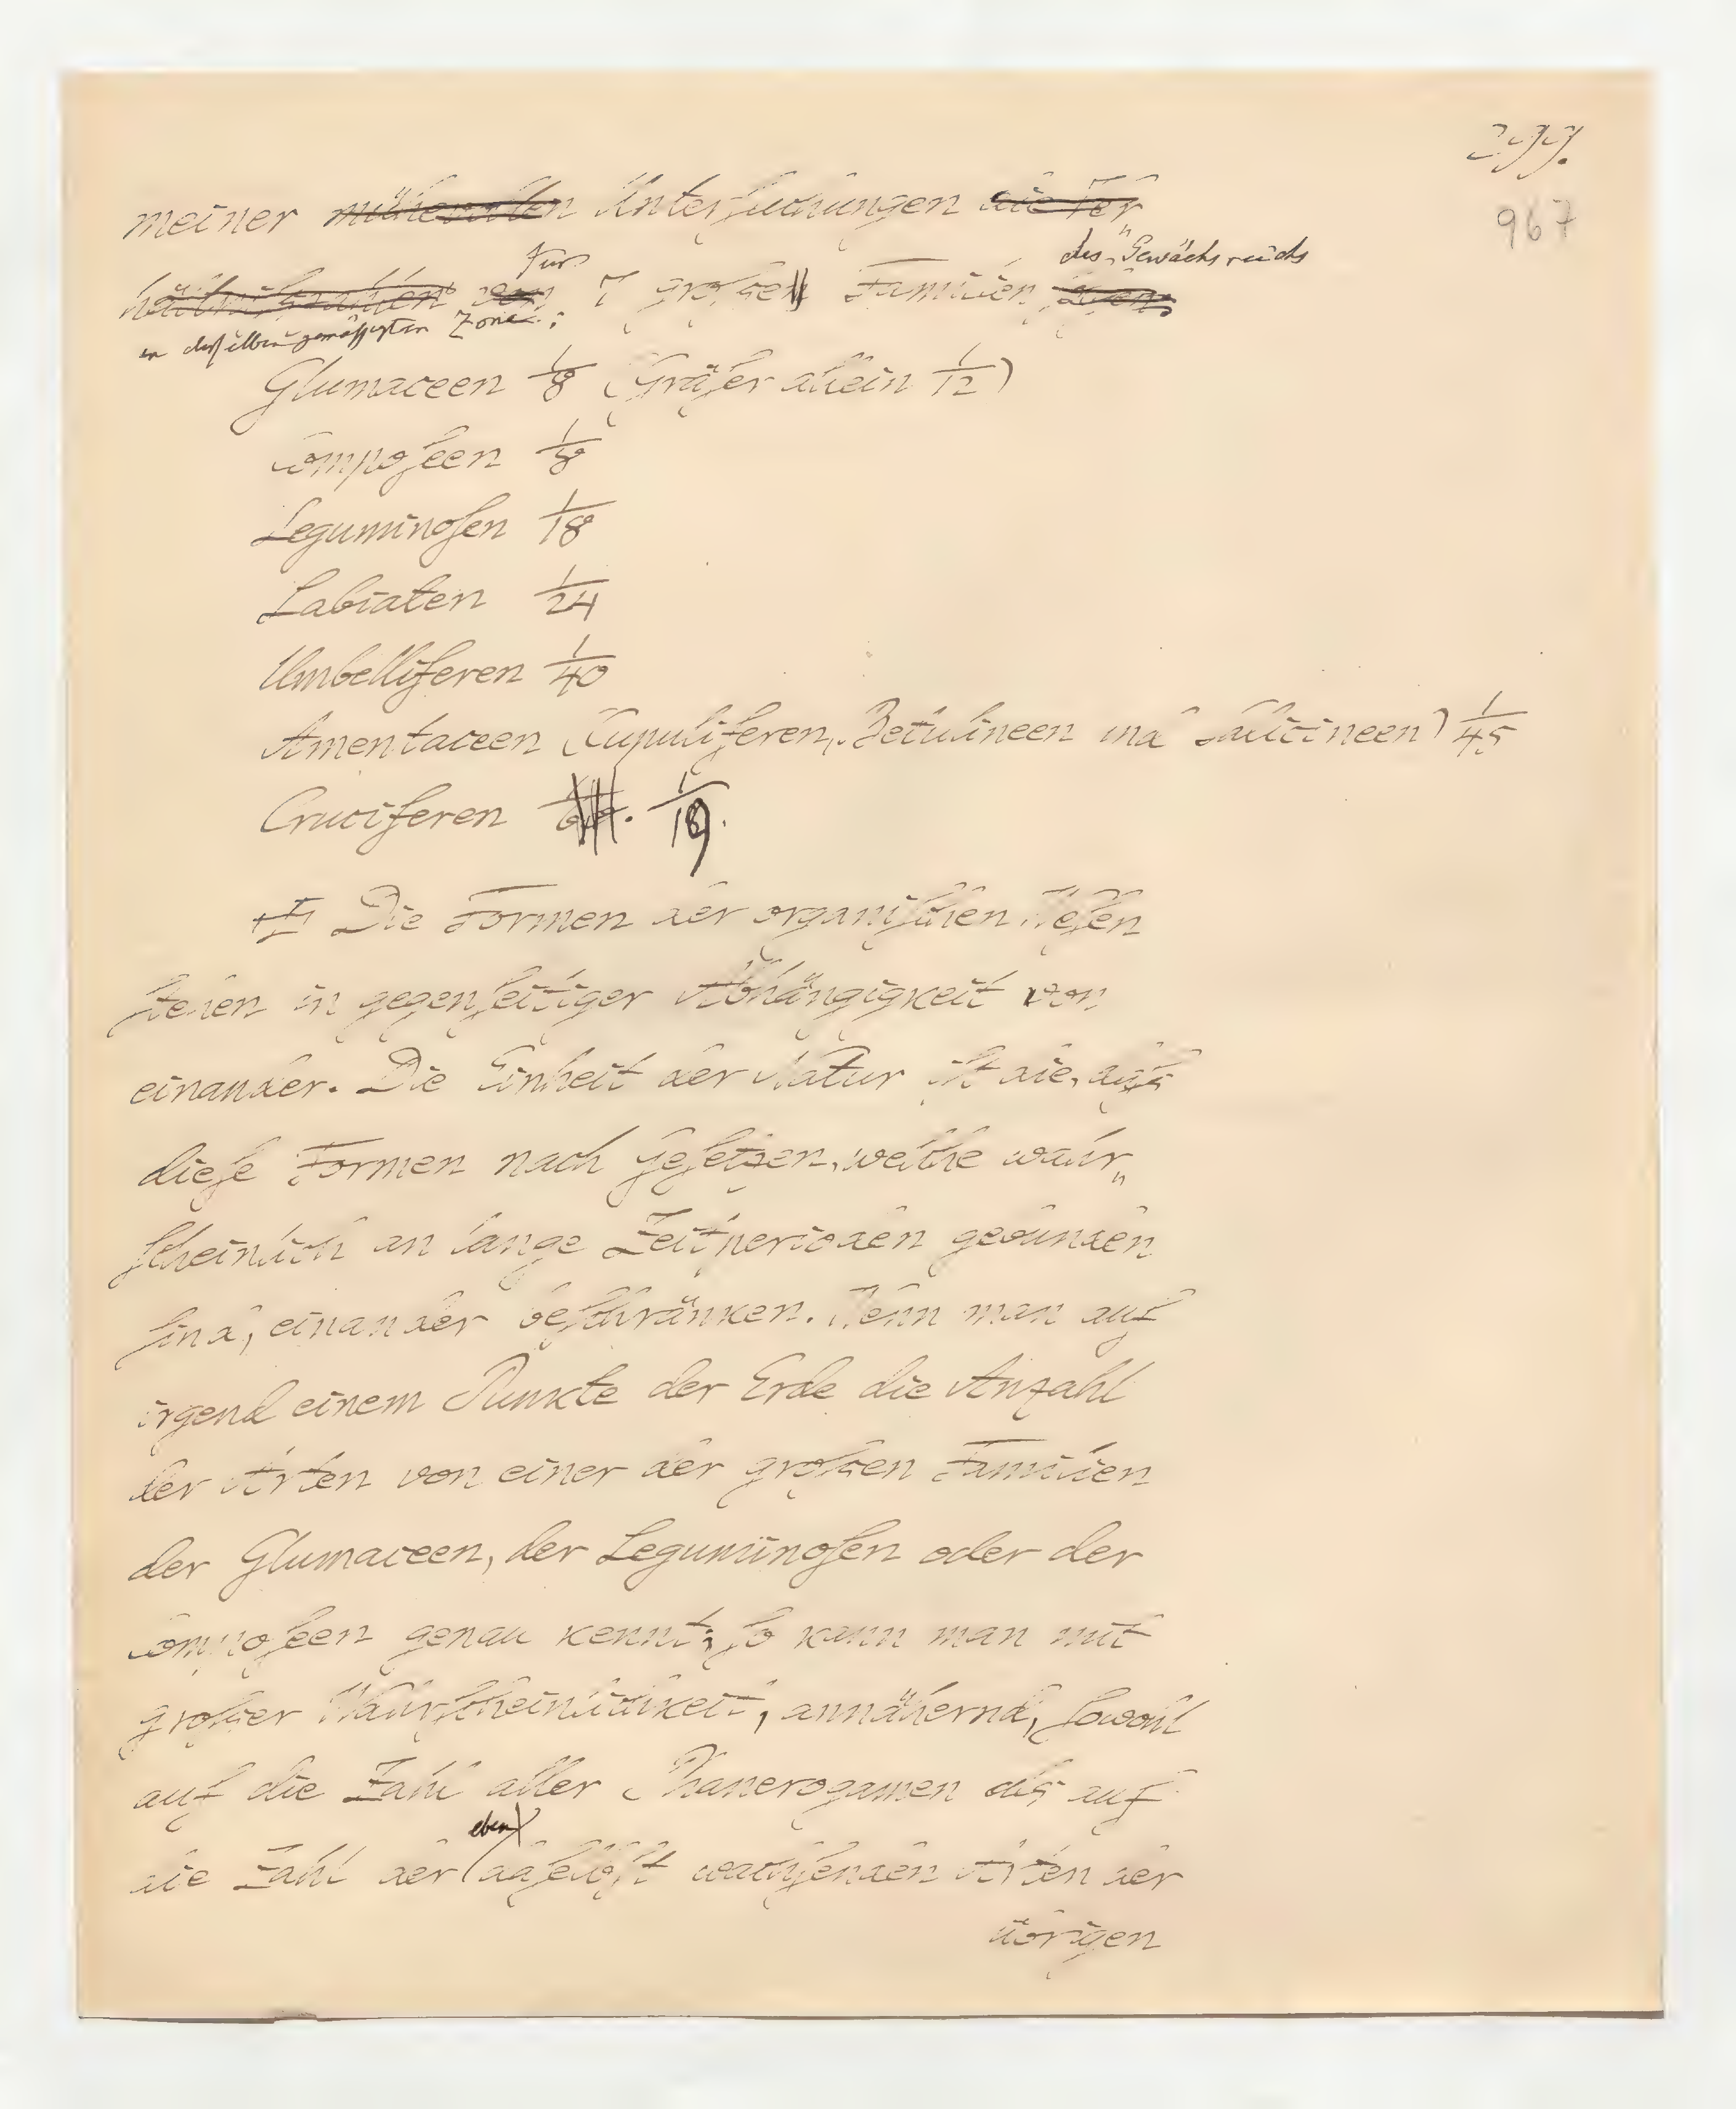 299.
967
meiner mühevollen Untersuchungen die Ver
hältnißzahlen von für 7 großen Familien des Gewächsreichs
in derselben gemässigten Zone:
Glumaceen 1/8 (Gräser allein 1/12)
Composeen 1/8
Leguminosen 1/18
Labiaten 1/24
Umbelliferen 1/40
Amentaceen (Cupuliferen, Betulineen und Salicineen) 1/45
Cruciferen 1/19.
Die Formen der organischen Wesen
stehen in gegenseitiger Abhängigkeit von
einander. Die Einheit der Natur ist die, daß
diese Formen nach Gesetzen, welche wahr„
scheinlich an lange Zeitperioden gebunden
sind, einander beschränken. Wenn man auf
irgend einem Punkte der Erde die Anzahl
der Arten von einer der großen Familien
der Glumaceen, der Leguminosen oder der
Composeen genau kennt; so kann man mit
großer Wahrscheinlichkeit, annähernd, sowohl
auf die Zahl aller Phanerogamen als auf
die Zahl der eben daselbst wachsenden Arten der
übrigen